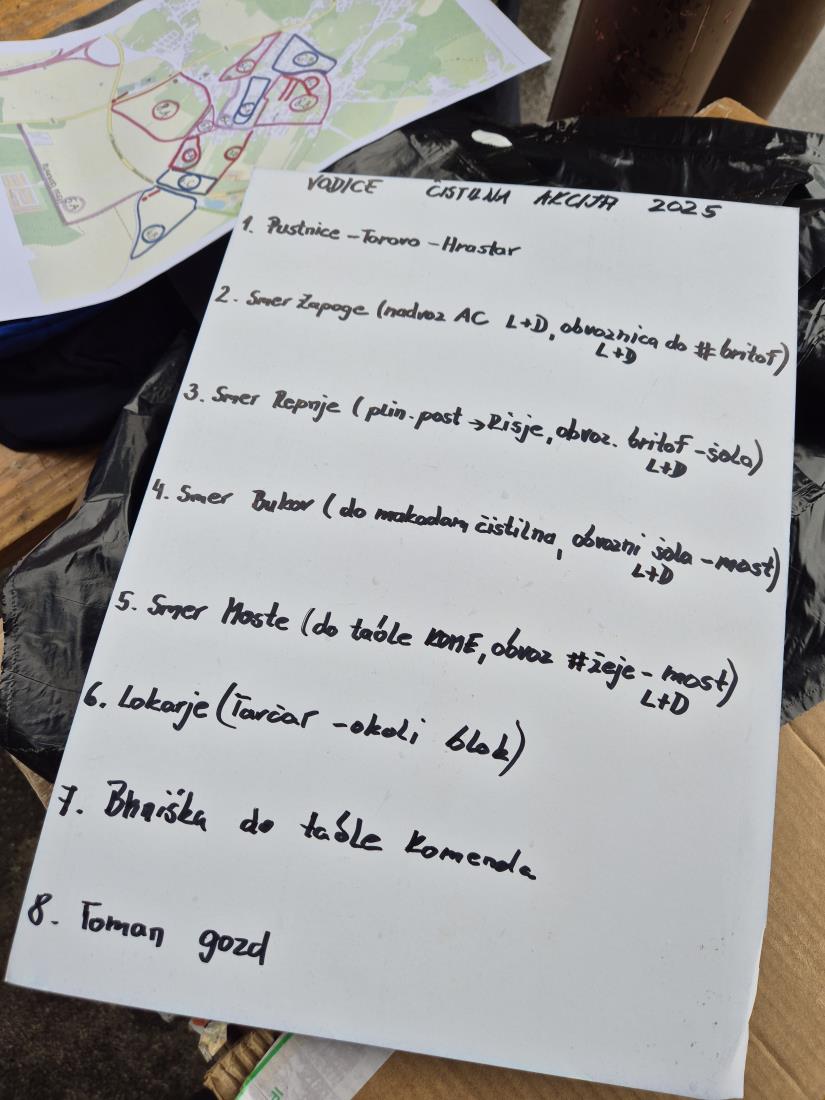 VODICE ČISTILNA AKCIJA 2025
1. Pustnice - Torovo - Hrastar
2. Smer Zapoge (nadvoz AC L+D, obvoznica do # britof)
L+D
3. Smer Repnje (plin. post → Risje, obvoz. britof - šola)
L+D
4. Smer Bukov (do makadam čistilna, obvozni šola - most)
L+D
5. Smer Moste (do table KOME, obvoz # žeje - most)
L+D
6. Lokarje (Tarčar - okoli blok)
7. do table Komenda
8. Toman gozd